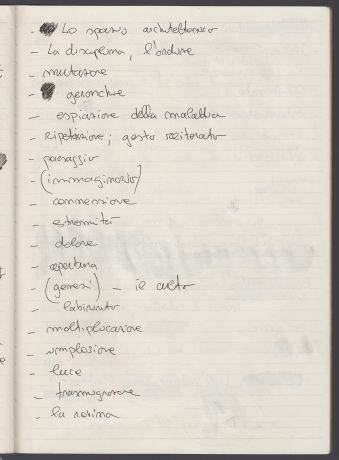 - Lo spazio architettonico
- La disciplina, l'ordine
- mutazione
- gerarchie
- espiazione della malattia
- ripetizione; gesto reiterato
- paesaggio
- (immaginario)
- connessione
- estremità
- dolore
- apertura
- (genesi) - il culto
- labirinto
- moltiplicazione
- implosione
- luce
- trasmigrazione
- la rovina